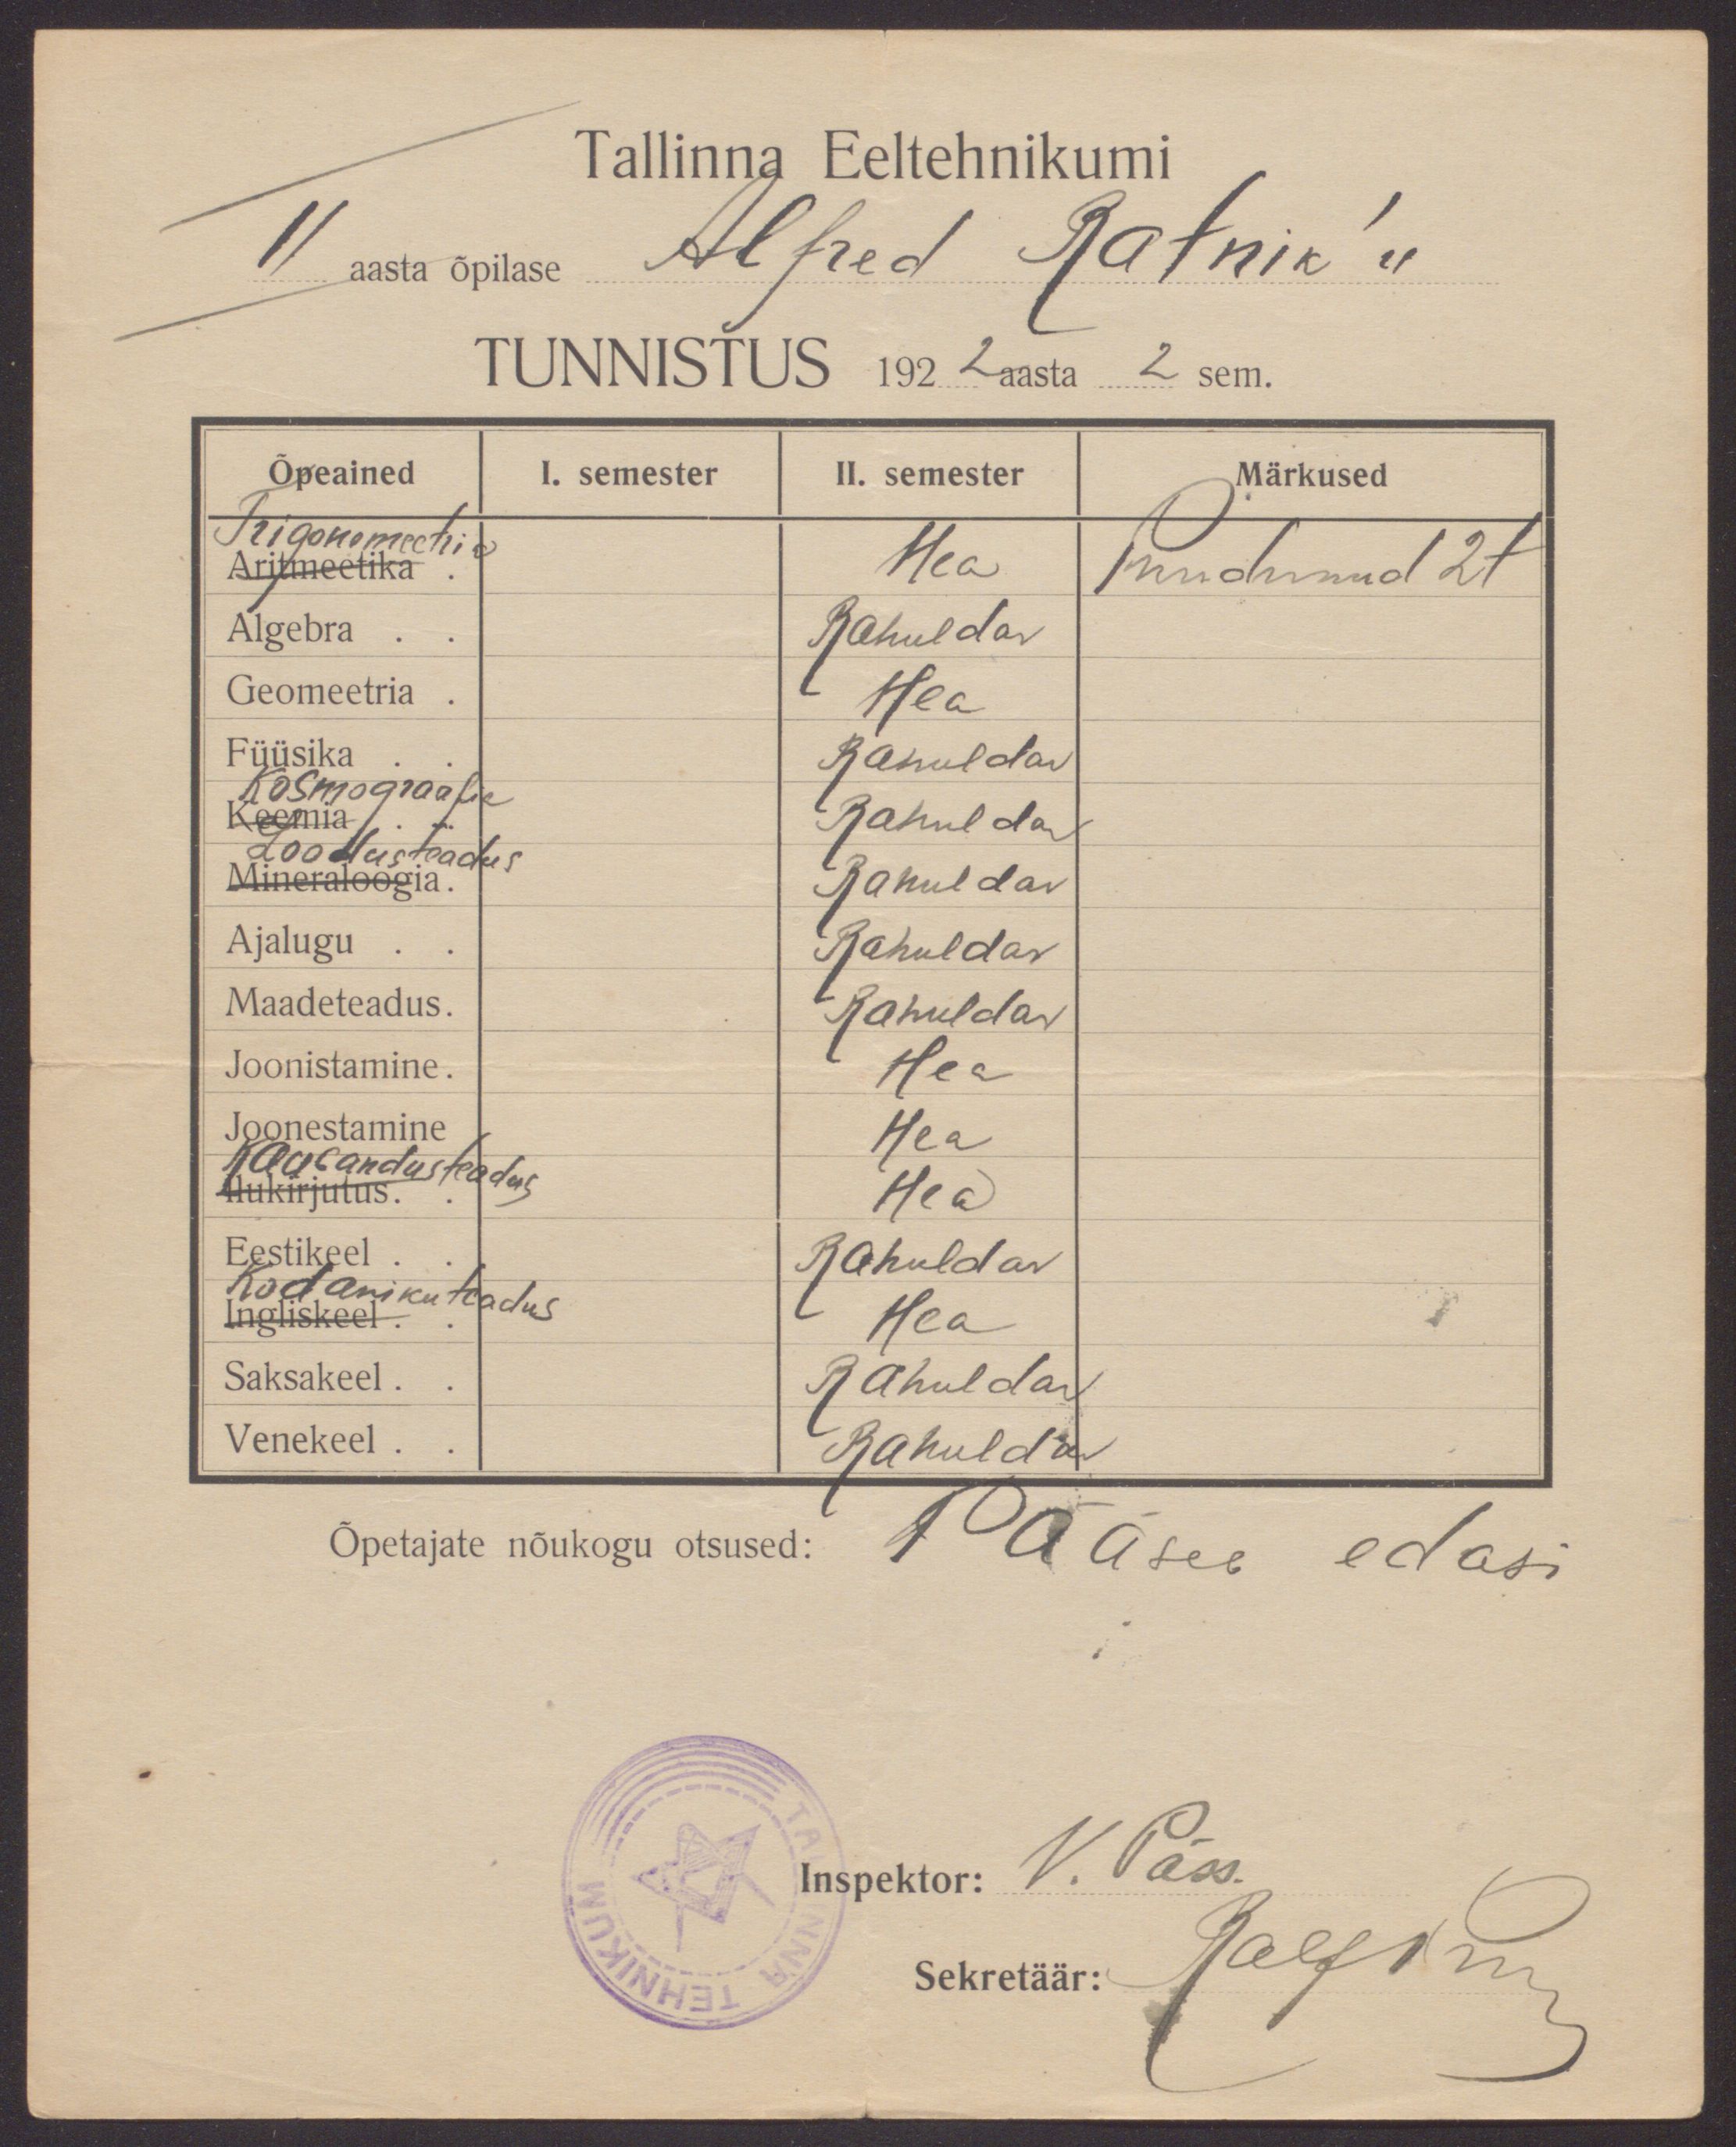 Tallinna Eeltehnikumi
II aasta õpilase Alfred Ratnik'u
TUNNISTUS 1922 aasta 2 sem.
Õpeained I. semester II. semester Märkused
Trigonomeetria
Aritmeetika . Hea Puudunud 2t
Algebra . . Rahuldav
Geomeetria . Hea
Füüsika . . Rahuldav
Kosmograafia
Keemia . . Rahuldav
Loodusteadus
Mineraloogia . Rahuldav
Ajalugu . . Rahuldav
Maadeteadus . Rahuldav
Joonistamine . Hea
Joonestamine Hea
Kaasandusteadus
Ilukirjutus . . Hea
Eestikeel . . Rahuldav
Kodanikuteadus
Ingliskeel . . Hea
Saksakeel . . Rahuldav
Venekeel . . Rahuldav
Õpetajate nõukogu otsused: Pääseb edasi
TALLINNA TEHNIKUM
Inspektor: V. Päss.
Sekretäär: